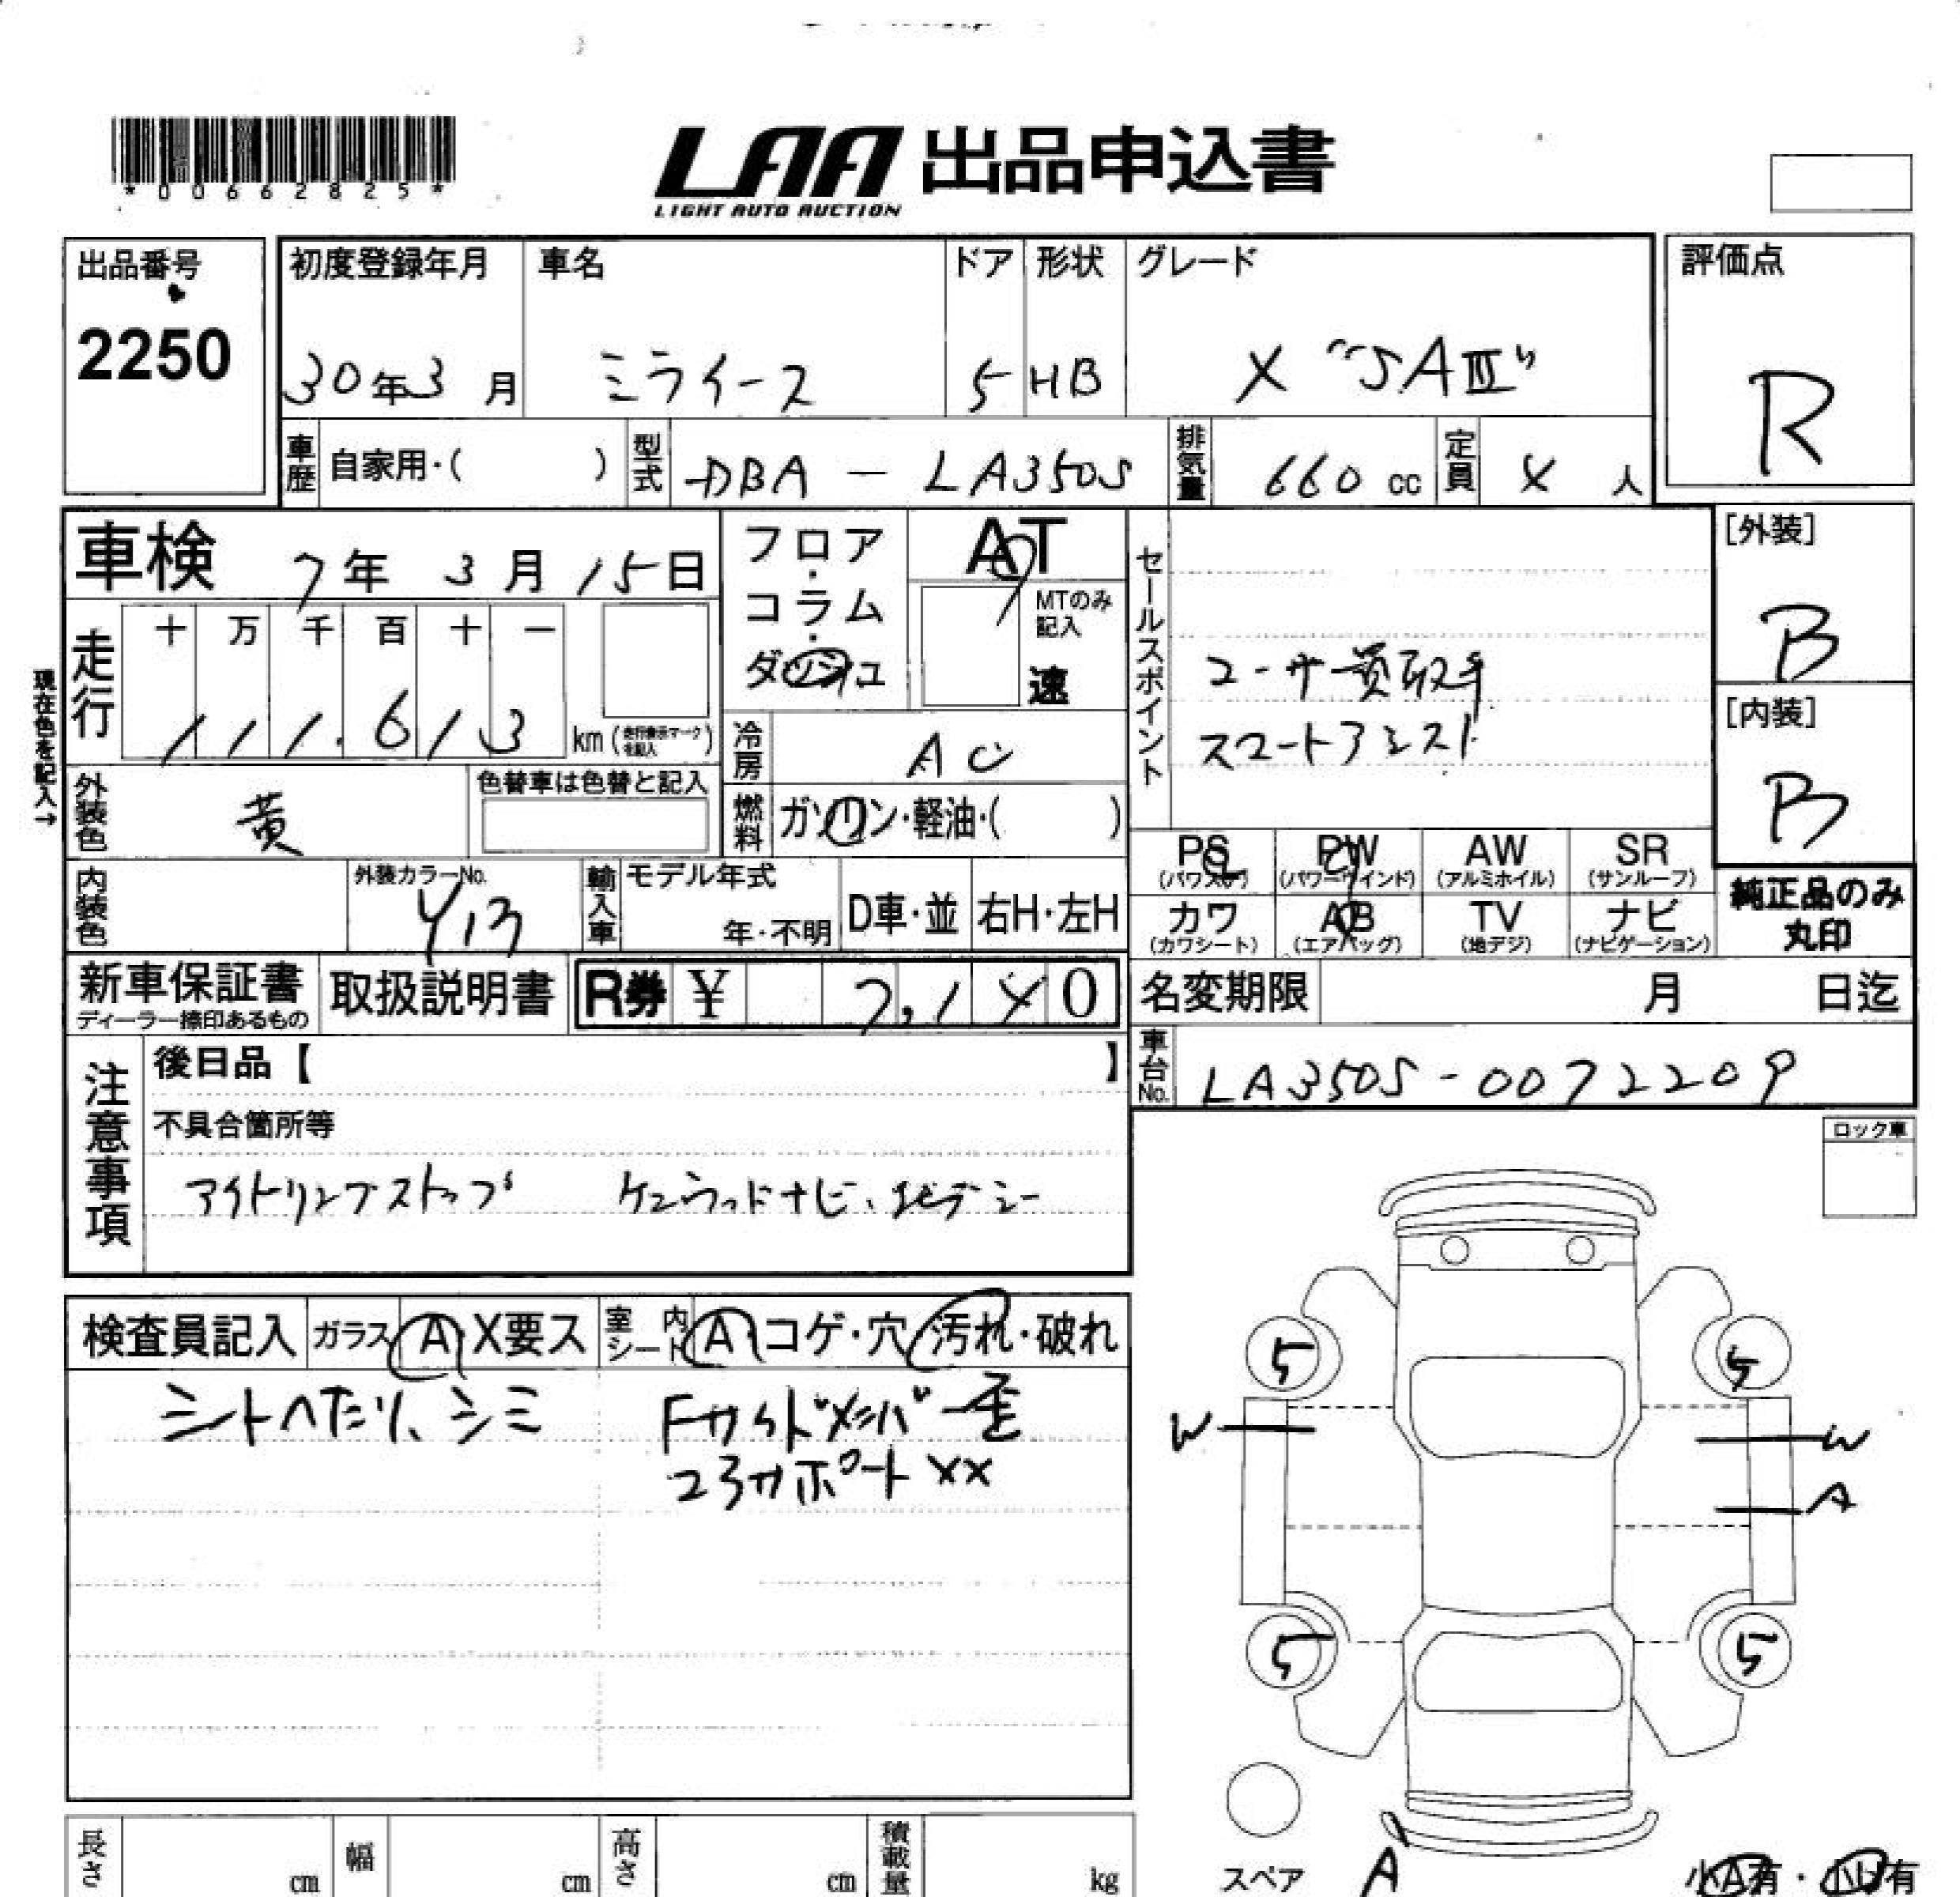 *00662825*
LAA 出品申込書
LIGHT AUTO AUCTION
出品番号
2250
初度登録年月
30年3月
車名
ミライース
ドア
5
形状
HB
グレード
X "SAⅢ"
評価点
R
車歴
自家用・( )
型式
DBA - LA350S
排気量
660 cc
定員
4 人
車検 7年 3月 15日
フロア・コラム・ダッシュ
AT
MTのみ記入
速
セールスポイント
ユーザー買取車
スマートアシスト
[外装]
B
[内装]
B
現在色を記入→
走行
十 万 千 百 十 一
111.613
km (走行表示マークを記入)
冷房
AC
燃料
ガソリン・軽油・( )
外装色
黄
色替車は色替と記入
内装色
外装カラーNo.
Y13
輸入車
モデル年式
年・不明
D車・並
右H・左H
PS (パワステ)
PW (パワーウインド)
AW (アルミホイル)
SR (サンルーフ)
カワ (カワシート)
AB (エアバッグ)
TV (地デジ)
ナビ (ナビゲーション)
純正品のみ丸印
新車保証書
ディーラー捺印あるもの
取扱説明書
R券 ¥ 7,140
名変期限 月 日迄
車台No.
LA350S-0072209
注意事項
後日品【 】
不具合箇所等
アイドリングストップ ケンウッドナビ、地デジ
ロック車
検査員記入
ガラス A X要ス
室内シート A・コゲ・穴・汚れ・破れ
シートヘたり、シミ
Fサイドメンバー歪
コアサポートXX
5 5
W W
A
5 5
スペア
A
小A有・小U有
長さ cm
幅 cm
高さ cm
積載量 kg